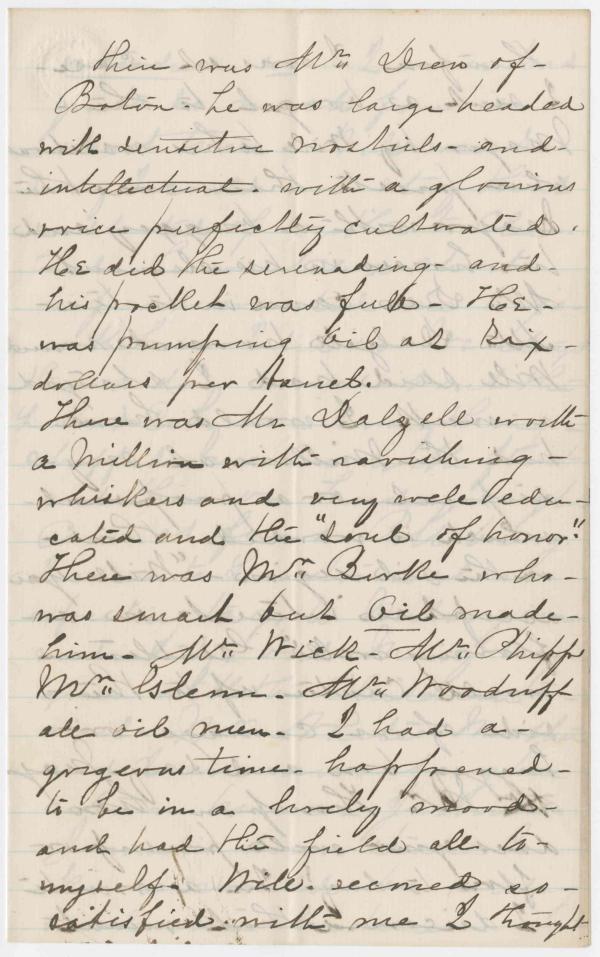 there was Mr. Drew of -
Boston. he was large-headed
with sensitive nostrils - and -
intellectual. with a glorious
voice perfectly cultivated.
He did the serenading - and -
his pocket was full - He -
was pumping oil at six -
dollars per barrel.
There was Mr Dalzell worth
a Million with ravishing -
whiskers and very well edu-
cated and the "soul of honor."
There was Mr. Burke who -
was smart but Oil made -
him - Mr. Wick - Mr. Phipps
Mr. Glenn - Mr. Woodruff
all oil men - I had a -
gorgeous time - happened -
to be in a lovely mood -
and had the field all to -
myself. Will seemed so -
satisfied with me I thought